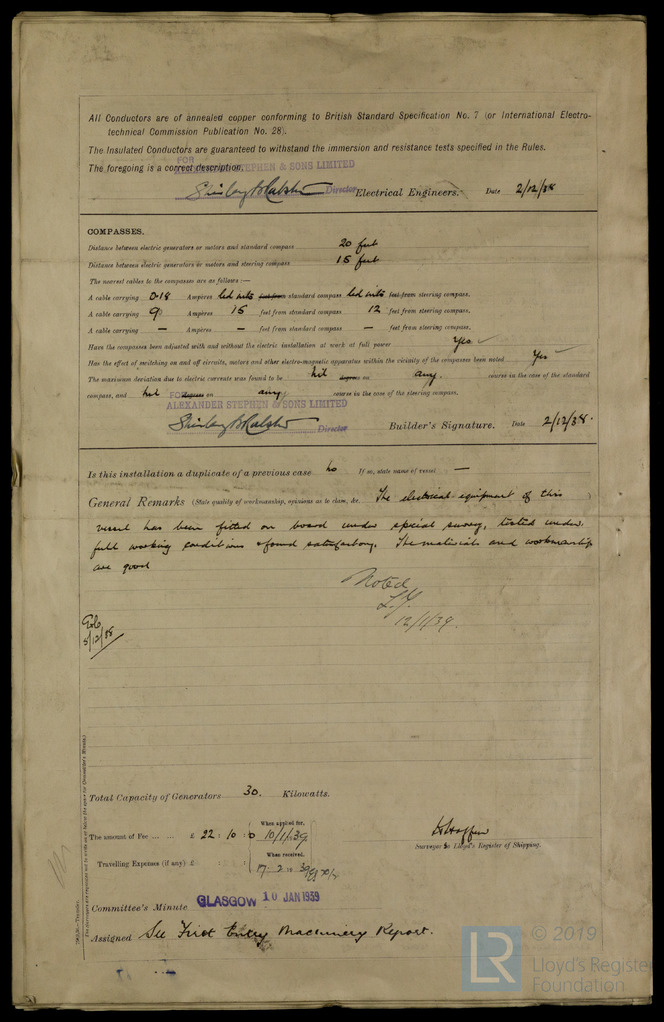 All Conductors are of annealed copper conforming to British Standard Specification No. 7 (or International Electro-
technical Commission Publication No. 28).
The Insulated Conductors are guaranteed to withstand the immersion and resistance tests specified in the Rules.
The foregoing is a correct description.
FOR
ALEXANDER STEPHEN & SONS LIMITED
Director Electrical Engineers. Date 2/12/38
COMPASSES.
Distance between electric generators or motors and standard compass 20 feet
Distance between electric generators or motors and steering compass 15 feet
The nearest cables to the compasses are as follows :—
A cable carrying 0.18 Amperes led into feet from standard compass led into feet from steering compass.
A cable carrying 9 Amperes 15 feet from standard compass 12 feet from steering compass.
A cable carrying — Amperes — feet from standard compass — feet from steering compass.
Have the compasses been adjusted with and without the electric installation at work at full power Yes
Has the effect of switching on and off circuits, motors and other electro-magnetic apparatus within the vicinity of the compasses been noted Yes
The maximum deviation due to electric currents was found to be nil degrees on any. course in the case of the standard
compass, and nil degrees on any course in the case of the steering compass.
FOR
ALEXANDER STEPHEN & SONS LIMITED
Director Builder's Signature. Date 2/12/38.
Is this installation a duplicate of a previous case no If so, state name of vessel —
General Remarks (State quality of workmanship, opinions as to class, &c. The electrical equipment of this
vessel has been fitted on board under special survey, tested under
full working conditions & found satisfactory. The materials and workmanship
are good
Noted
12/1/39.
5/12/38
Total Capacity of Generators 30. Kilowatts.
The amount of Fee ... ... £ 22 : 10 : 0 When applied for, 10/1/39
Surveyor to Lloyd's Register of Shipping.
Travelling Expenses (if any) £ : : When received, 17.2.39
Committee's Minute GLASGOW 10 JAN 1939
Assigned See First Entry Machinery Report.
© 2019
LR Lloyd's Register
Foundation